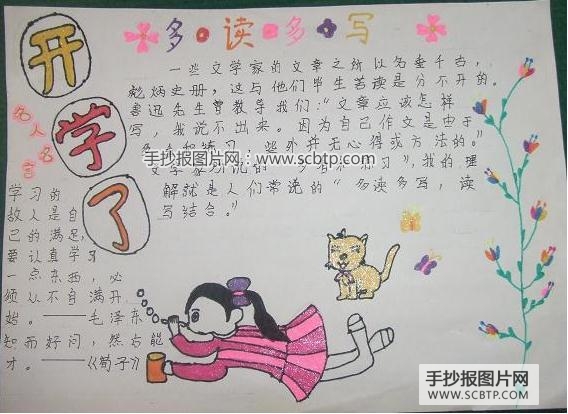 开学了
多读多写
一些文学家的文章之所以名垂千古,
彪炳史册,这与他们毕生苦读是分不开的。
鲁迅先生曾教导我们:“文章应该怎样
写,我说不出来。因为自己作文是由于
此外并无心得或方法的。”
文学家所说的“多看和练习”,我的理
解就是人们常说的“多读多写,读
写结合。”
名人名言
学习的
故人是自
己的满足,
要认真学习
一点东西,必
须从不自满开
始。——毛泽东
知而好问,然后能
才。——《荀子》
手抄报图片网:www.scbtp.com
手抄报图片网
WWW.SCBTP.COM